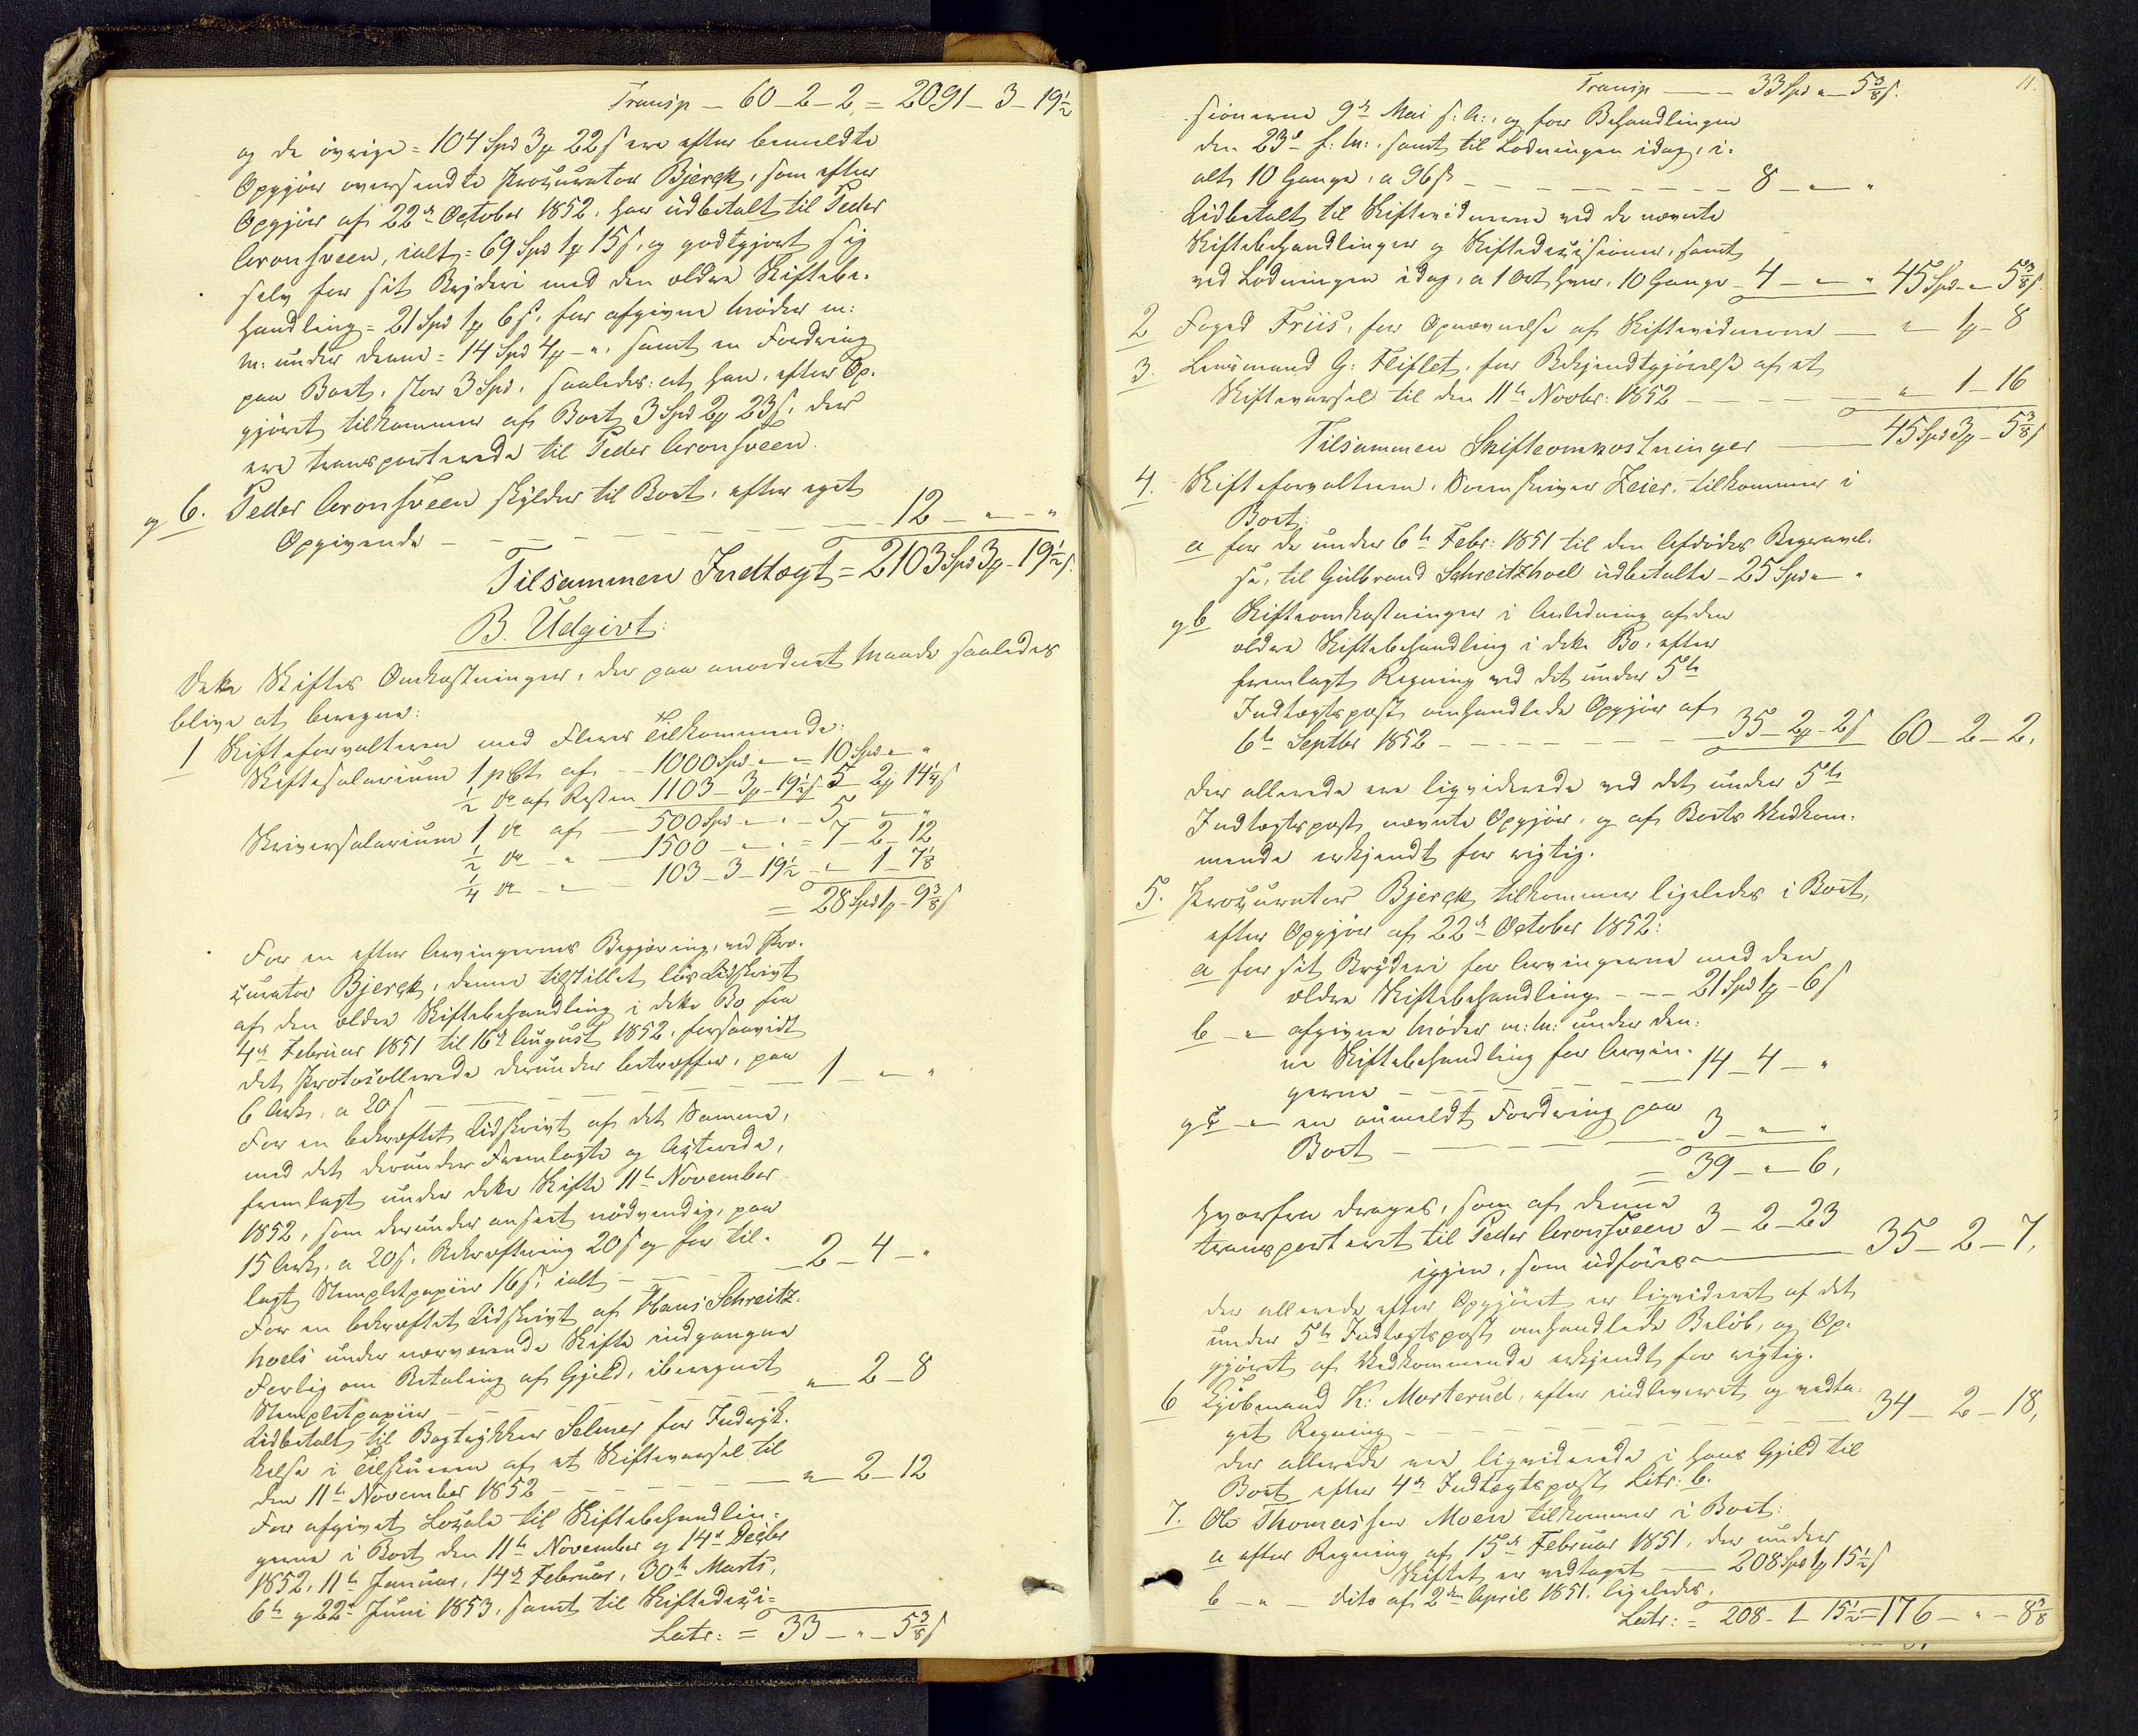 Transp — 60 — 2 — 2, = 2091 — 3 — 19½
og de övrige = 104 Spd 3 ₰ 22 s ere efter bemeldte
Opgjör oversendte Procurator Bjerck, som efter
Opgjör af 22de October 1852, har udbetalt til Peder
Aronsveen, ialt = 69 Spd 1 ₰ 15 s, og godtgjort sig
selv for sit Bryderi med den ældre Skiftebe-
handling = 21 Spd 1 ₰ 6 s, for afgivne Möder m:
m: under denne = 14 Spd 4 ₰ — ", samt en Fordring
paa Boet, stor 3 Spd, saaledes: at han, efter Op-
gjöret tilkommer af Boet 3 Spd 2 ₰ 23 s, der
ere transporterede til Peder Aronsveen.
og 6. Peder Aronsveen skylder til Boet, efter eget
Opgivende — — — — — 12 — " — "
Tilsammen Indtægt = 2103 Spd 3 ₰ - 19½ s.
B. Udgivt:
Dette Skiftes Omkostninger, der paa anordnet Maade saaledes
blive at beregne:
1 Skifteforvalteren med Flere Tilkommende:
Skiftesalarium 1 pCt af — 1000 Spd — " = 10 Spd — "
½ do af Resten 1103 — 3 ₰ — 19½ s - 5 — 2 ₰ 14¼ s
Skriversalarium 1 do af — 500 Spd — " — 5 — " — "
½ do — " — 1500 — " — " = 7 — 2 — 12
¼ do — " — 103 — 3 — 19½ — " — 1 — 7⅛
= 28 Spd 1 ₰ - 9⅜ s
For en efter Arvingernes Begjæring, ved Pro-
curator Bjerck, denne tilstillet lös Udskrivt
af den ældre Skiftebehandling i dette Bo fra
4de Februar 1851 til 16de August 1852, forsaavidt
det Protocollerede derunder betræffer, paa
6 Ark, a 20 s — — — — 1 — " — "
For en bekræftet Udskrivt af det Samme,
med det derunder Fremlagte og Acterede,
fremlagt under dette Skifte 11te November
1852, som derunder anseet nödvendig, paa
15 Ark, a 20 s, Bekræftning 20 s og for til-
lagt Stempletpapiir 16 s, ialt — — — 2 — 4 — "
For en bekræftet Udskrivt af Hans Schreitz-
hoels under nærværende Skifte indgangne
Forlig om Betaling af Gjeld, iberegnet
Stempletpapiir — — — — " — 2 — 8
Udbetalt til Bogtrykker Selmer for Indryk-
kelse i Tilskueren af et Skiftevarsel til
den 11te November 1852 — — — — " — 2 — 12
For afgivet Locale til Skiftebehandlin-
gerne i Boet den 11te November og 14de Decbr
1852, 11te Januar, 14de Februar, 30te Marts,
6te og 22de Juni 1853, samt til Skiftedeci-
Latr: = 33 — " — 5⅜ s
11.
Transp — — 33 Spd " — 5⅜ s.
sionerne 9de Mai s: A:, og for Behandlingen
den 23de s: M:, samt til Lodningen idag, i-
alt 10 Gange, a 96 s — — — — — 8 — " — "
Udbetalt til Skiftevidnerne ved de nævnte
Skiftebehandlinger og Skiftedecisioner, samt
ved Lodningen idag, a 1 Ort hver, 10 Gange — 4 — " — " 45 Spd — " 5⅜ s.
2 Foged Friis, for Opnævnelse af Skiftevidnerne — " — 1 ₰ — 8
3. Lensmand G: Fliflet, for Bekjendtgjörelse af et
Skiftevarsel til den 11te Novbr: 1852 — — — " — 1 — 16
Tilsammen Skifteomkostninger — 45 Spd 3 ₰ — 5⅜ s
4. Skifteforvalteren, Sorenskriver Zeier, tilkommer i
Boet:
a for de under 6te Febr: 1851 til den Afdödes Begravel-
se, til Gulbrand Schreitzhoel udbetalte — 25 Spd " — "
og b Skifteomkostninger i Anledning af den
ældre Skiftebehandling i dette Bo, efter
fremlagt Regning ved det under 5te
Indtægtspost omhandlede Opgjör af
6te Septbr 1852 — — — — 35 — 2 ₰ — 2 s 60 — 2 — 2,
der allerede ere liqviderede ved det under 5te
Indtægtspost nævnte Opgjör, og af Boets Vedkom-
mende erkjendt for rigtig.
5. Procurator Bjerck tilkommer ligeledes i Boet,
efter Opgjör af 22de October 1852:
a for sit Bryderi for Arvingerne med den
ældre Skiftebehandling — — 21 Spd 1 ₰ — 6 s
b — " — afgivne Möder m: m: under den-
ne Skiftebehandling for Arvin-
gerne — — — — 14 — 4 — "
og c — " — en anmeldt Fordring paa
Boet — — — — 3 — " — "
= 39 — " — 6,
hvorfra drages, som af denne
transporteret til Peder Aronsveen 3 — 2 — 23
igjen, som udföres — — 35 — 2 — 7,
der allerede efter Opgjöret er liqvideret af det
under 5te Indtægtspost omhandlede Belöb, og Op-
gjöret af Vedkommende erkjendt for rigtig.
6 Kjöbmand K: Morterud, efter indleveret og vedta-
get Regning — — — — — 34 — 2 — 18,
der allerede ere liqviderede i hans Gjeld til
Boet efter 4de Indtægtspost Litr: b.
7. Ole Thomassen Moen tilkommer i Boet:
a efter Regning af 15de Februar 1851, der under
Skiftet er vedtaget — 208 Spd 1 ₰ 15½ s
b — " — dito af 2den April 1851, ligeledes.
Latr: = 208 - 1 15½ = 176 — " — 8⅜